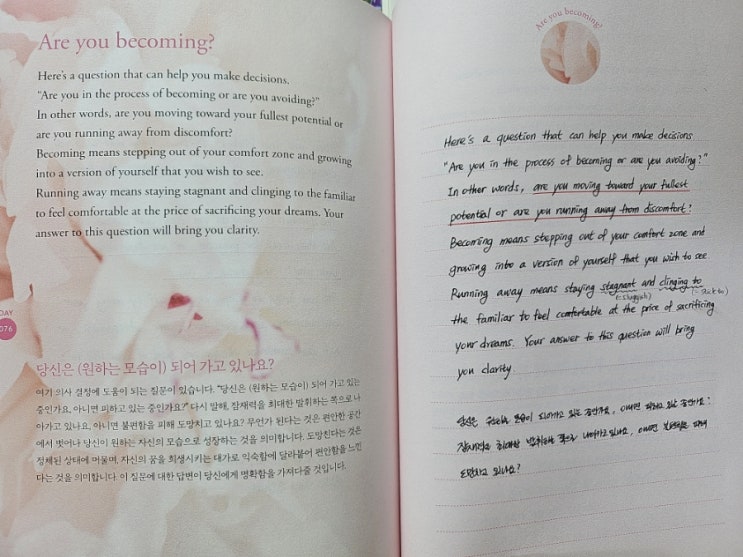 Are you becoming?
Here's a question that can help you make decisions.
"Are you in the process of becoming or are you avoiding?"
In other words, are you moving toward your fullest potential or
are you running away from discomfort?
Becoming means stepping out of your comfort zone and growing
into a version of yourself that you wish to see.
Running away means staying stagnant and clinging to the familiar
to feel comfortable at the price of sacrificing your dreams. Your
answer to this question will bring you clarity.
DAY
076
당신은 (원하는 모습이) 되어 가고 있나요?
여기 의사 결정에 도움이 되는 질문이 있습니다. "당신은 (원하는 모습이) 되어 가고 있는
중인가요, 아니면 피하고 있는 중인가요?" 다시 말해, 잠재력을 최대한 발휘하는 쪽으로 나
아가고 있나요, 아니면 불편함을 피해 도망치고 있나요? 무언가 된다는 것은 편안한 공간
에서 벗어나 당신이 원하는 자신의 모습으로 성장하는 것을 의미합니다. 도망친다는 것은
정체된 상태에 머물며, 자신의 꿈을 희생시키는 대가로 익숙함에 달라붙어 편안함을 느낀
다는 것을 의미합니다. 이 질문에 대한 답변이 당신에게 명확함을 가져다줄 것입니다.
Are you becoming?
Here's a question that can help you make decisions
"Are you in the process of becoming or are you avoiding?"
In other words, are you moving toward your fullest
potential or are you running away from discomfort?
Becoming means stepping out of your comfort zone and
growing into a version of yourself that you wish to see
Running away means staying stagnant and clinging to
(=sluggish) (=stick to)
the familiar to feel comfortable at the price of sacrificing
your dreams. Your answer to this question will bring
you clarity.
당신은 모습이 되어가고 있는 중인가요, 아니면 피하고 있는 중인가요?
잠재력을 최대한 발휘하는 쪽으로 나아가고 있나요, 아니면 불편함을 피해
도망치고 있나요?